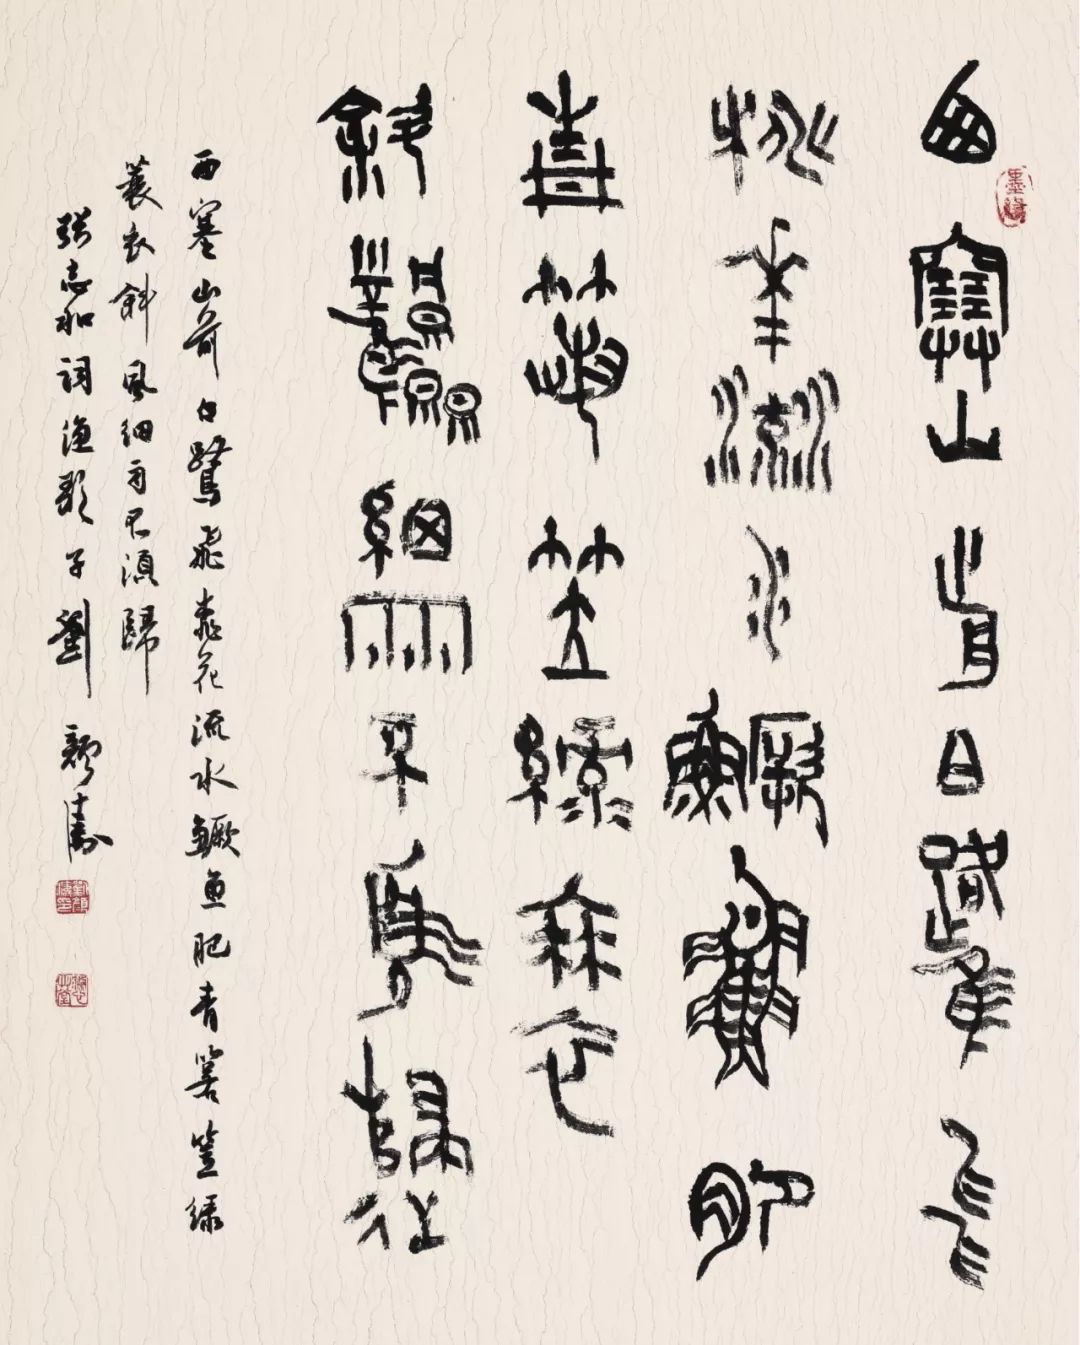 西塞山前白鷺飛
桃華流水鱖魚肥
青箬笠綠蓑衣
斜風細雨不須歸
西塞山前白鷺飛桃花流水鱖魚肥青箬笠綠
蓑衣斜風細雨不須歸
張志和詞漁歌子劉顏濤